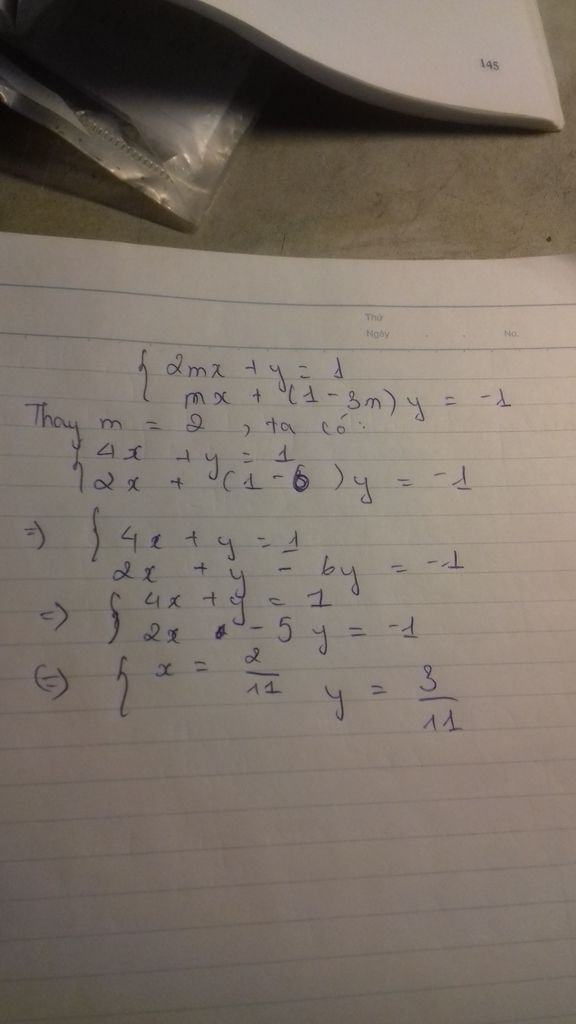 145
Thứ
Ngày . . No.
{ 2mx + y = 1
mx + (1 - 3m) y = -1
Thay m = 2 , ta có:
{ 4x + y = 1
2x + (1 - 6) y = -1
=> { 4x + y = 1
2x + y - 6y = -1
=> { 4x + y = 1
2x - 5y = -1
(=) { x = 2/11 y = 3/11